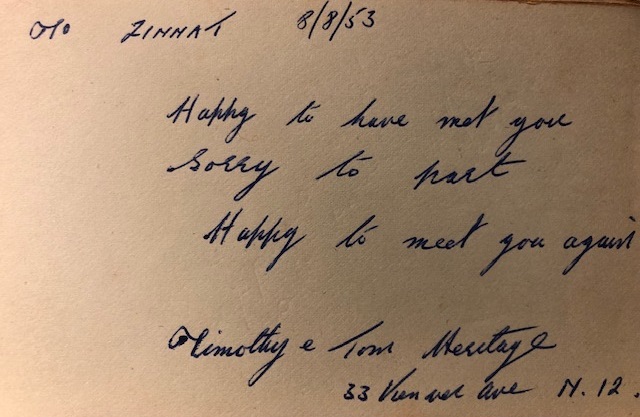 To ZINNAT 8/8/53
Happy to have met you
Sorry to part
Happy to meet you again
Timothy e Tom Heritage
33 Ave N.12.